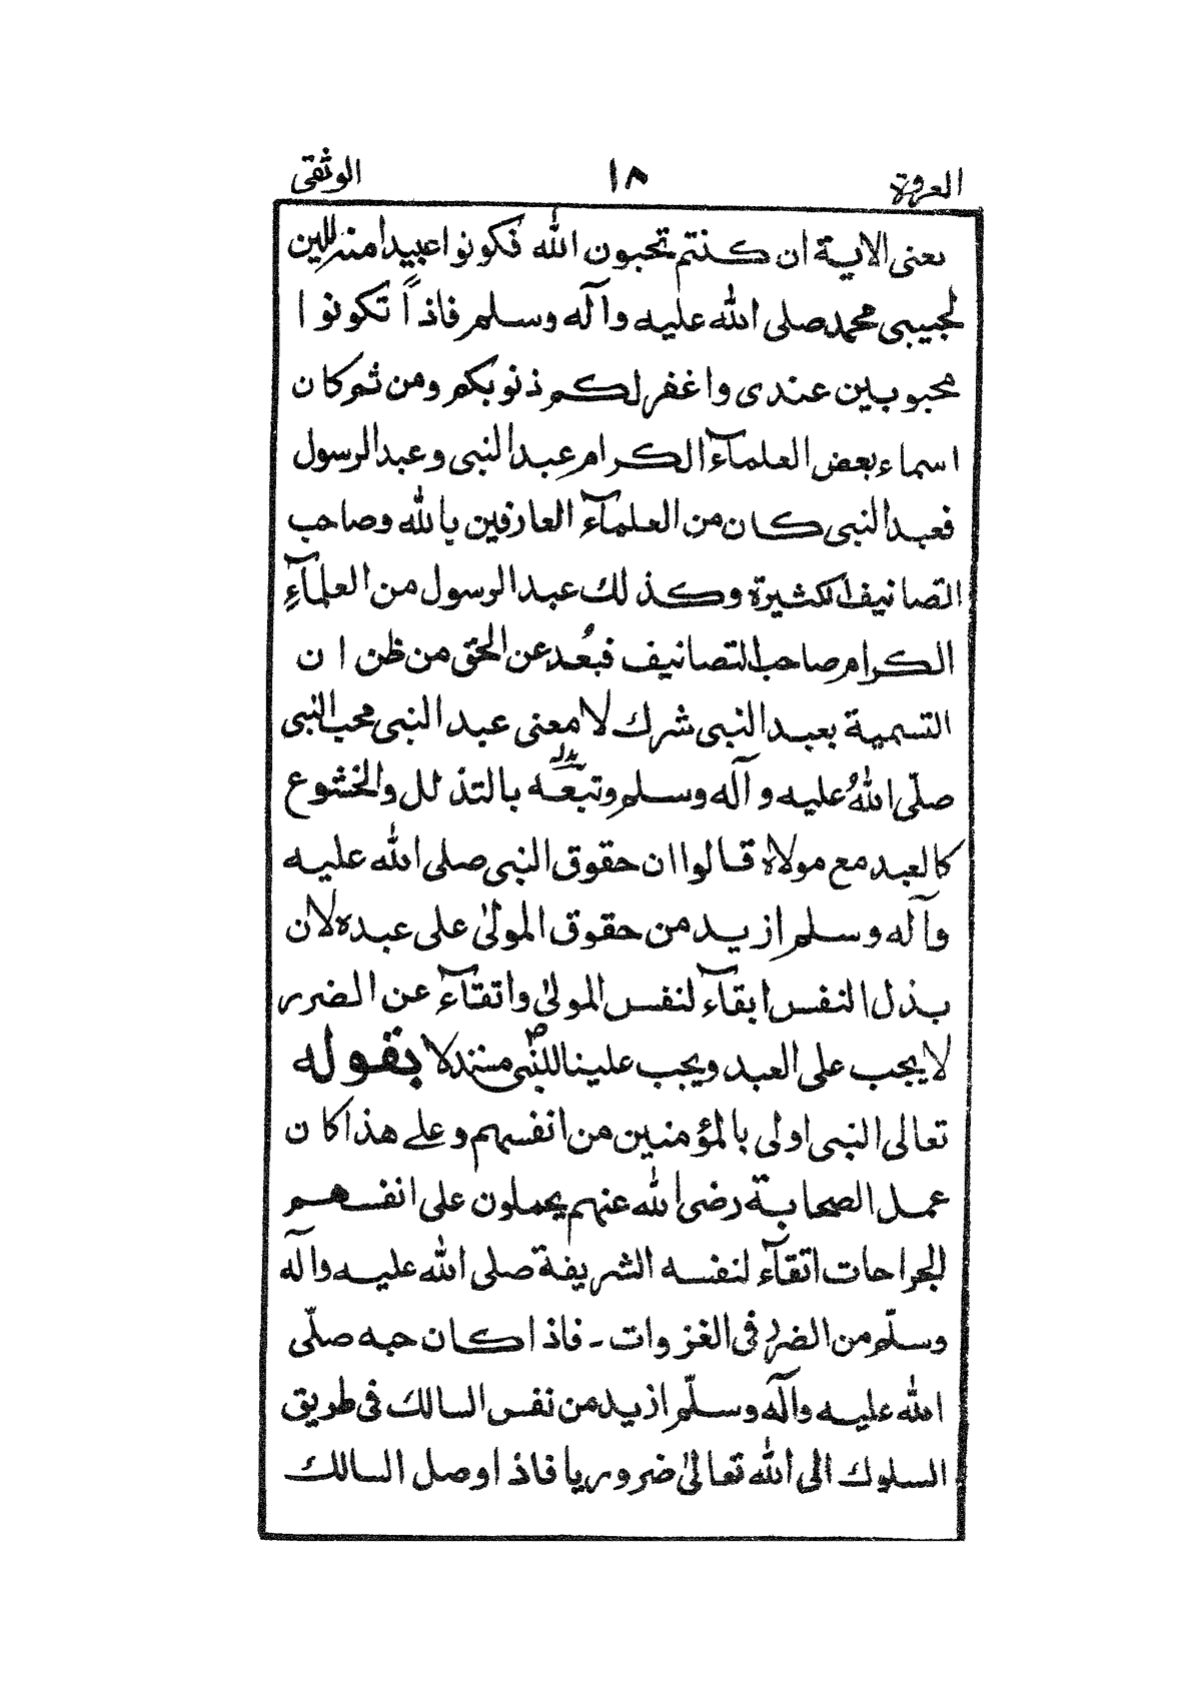 العروة ١٨ الوثقى
يعنى الاية ان كنتم تحبون الله فكونوا عبيدا متذللين
لحبيبى محمد صلى الله عليه وآله وسلم فاذاً تكونوا
محبوبين عندى واغفر لكم ذنوبكم ومن ثم كان
اسماء بعض العلمآء الكرام عبد النبى وعبد الرسول
فعبد النبى كان من العلمآء العارفين بالله وصاحب
التصانيف الكثيرة وكذلك عبد الرسول من العلمآءِ
الكرام صاحب التصانيف فبُعد عن الحق من ظن ان
التسمية بعبد النبى شرك لا معنى عبد النبى محب النبى
صلّى اللهُ عليه وآله وسلم وتبعه بالتذلل والخشوع
كالعبد مع مولاه قالوا ان حقوق النبى صلى الله عليه
وآله وسلم ازيد من حقوق المولىٰ على عبده لان
بذل النفس ابقآء لنفس المولىٰ واتقآء عن الضرر
لا يجب على العبد ويجب علينا للنبى مستدلا بقوله
تعالى النبى اولى بالمؤمنين من انفسهم وعلے هذا كان
عمل الصحابة رضى الله عنهم يحملون على انفسهم
الجراحات اتقآء لنفسه الشريفة صلى الله عليه وآله
وسلّم من الضرر فى الغزوات ـ فاذا كان حبه صلّى
الله عليه وآله وسلّم ازيد من نفس السالك فى طريق
السلوك الى الله تعالىٰ ضروريا فاذا وصل السالك